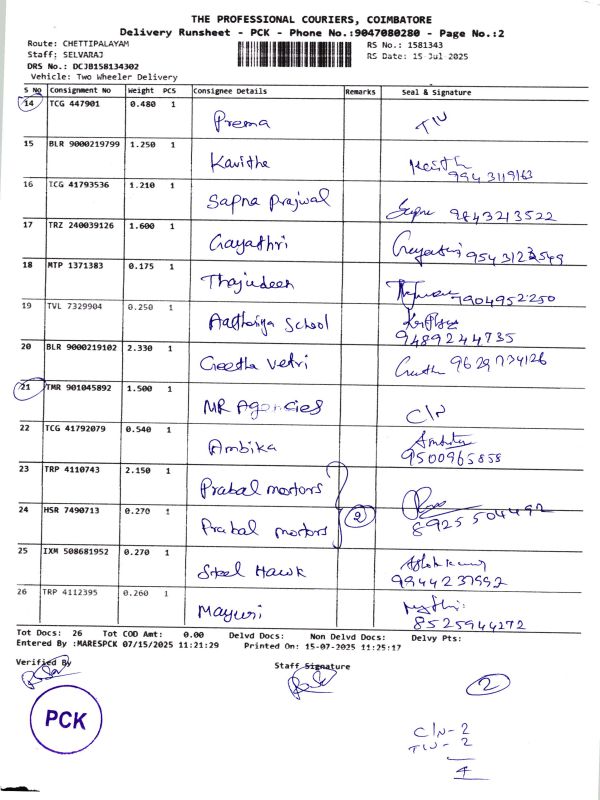 THE PROFESSIONAL COURIERS, COIMBATORE
Delivery Runsheet - PCK - Phone No.:9047080280 - Page No.:2
Route: CHETTIPALAYAM RS No.: 1581343
Staff: SELVARAJ RS Date: 15-Jul 2025
DRS No.: DCJB158134302
Vehicle: Two Wheeler Delivery
S No Consignment No Weight PCS Consignee Details Remarks Seal & Signature
14 TCG 447901 0.480 1 Prema T/N
15 BLR 9000219799 1.250 1 Kavitha 9943119163
16 TCG 41793536 1.210 1 Sapna prajwal 9843213522
17 TRZ 240039126 1.600 1 Gayathri Gayathri
18 MTP 1371383 0.175 1 Thajudeen 7904952250
19 TVL 7329904 0.250 1 School 9489244735
20 BLR 9000219102 2.330 1 Geetha vetri 9629734126
21 TMR 901045892 1.500 1 MR Agencies C/N
22 TCG 41792079 0.540 1 Ambika 9500965858
23 TRP 4110743 2.150 1 Prabal mortors
24 HSR 7490713 0.270 1 Prabal mortors 2 8925504492
25 IXM 508681952 0.270 1 Steel Hawk Ashok kumar 9944237992
26 TRP 4112395 0.260 1 Mayuri 8525944272
Tot Docs: 26 Tot COD Amt: 0.00 Delvd Docs: Non Delvd Docs: Delvy Pts:
Entered By :MARESPCK 07/15/2025 11:21:29 Printed On: 15-07-2025 11:25:17
Verified By Staff Signature
2
PCK
C/N - 2
T/N - 2
4